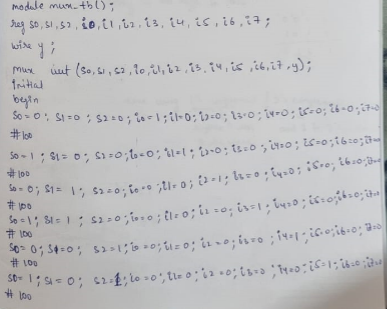 module mux_tb();
reg s0,s1,s2,i0,i1,i2,i3,i4,i5,i6,i7;
wire y;
mux uut (s0,s1,s2,i0,i1,i2,i3,i4,i5,i6,i7,y);
initial
begin
s0=0; s1=0; s2=0; i0=1; i1=0; i2=0; i3=0; i4=0; i5=0; i6=0; i7=0
#100
s0=1; s1=0; s2=0; i0=0; i1=1; i2=0; i3=0; i4=0; i5=0; i6=0; i7=0
#100
s0=0; s1=1; s2=0; i0=0; i1=0; i2=1; i3=0; i4=0; i5=0; i6=0; i7=0
#100
s0=1; s1=1; s2=0; i0=0; i1=0; i2=0; i3=1; i4=0; i5=0; i6=0; i7=0
#100
s0=0; s1=0; s2=1; i0=0; i1=0; i2=0; i3=0; i4=1; i5=0; i6=0; i7=0
#100
s0=1; s1=0; s2=1; i0=0; i1=0; i2=0; i3=0; i4=0; i5=1; i6=0; i7=0
#100